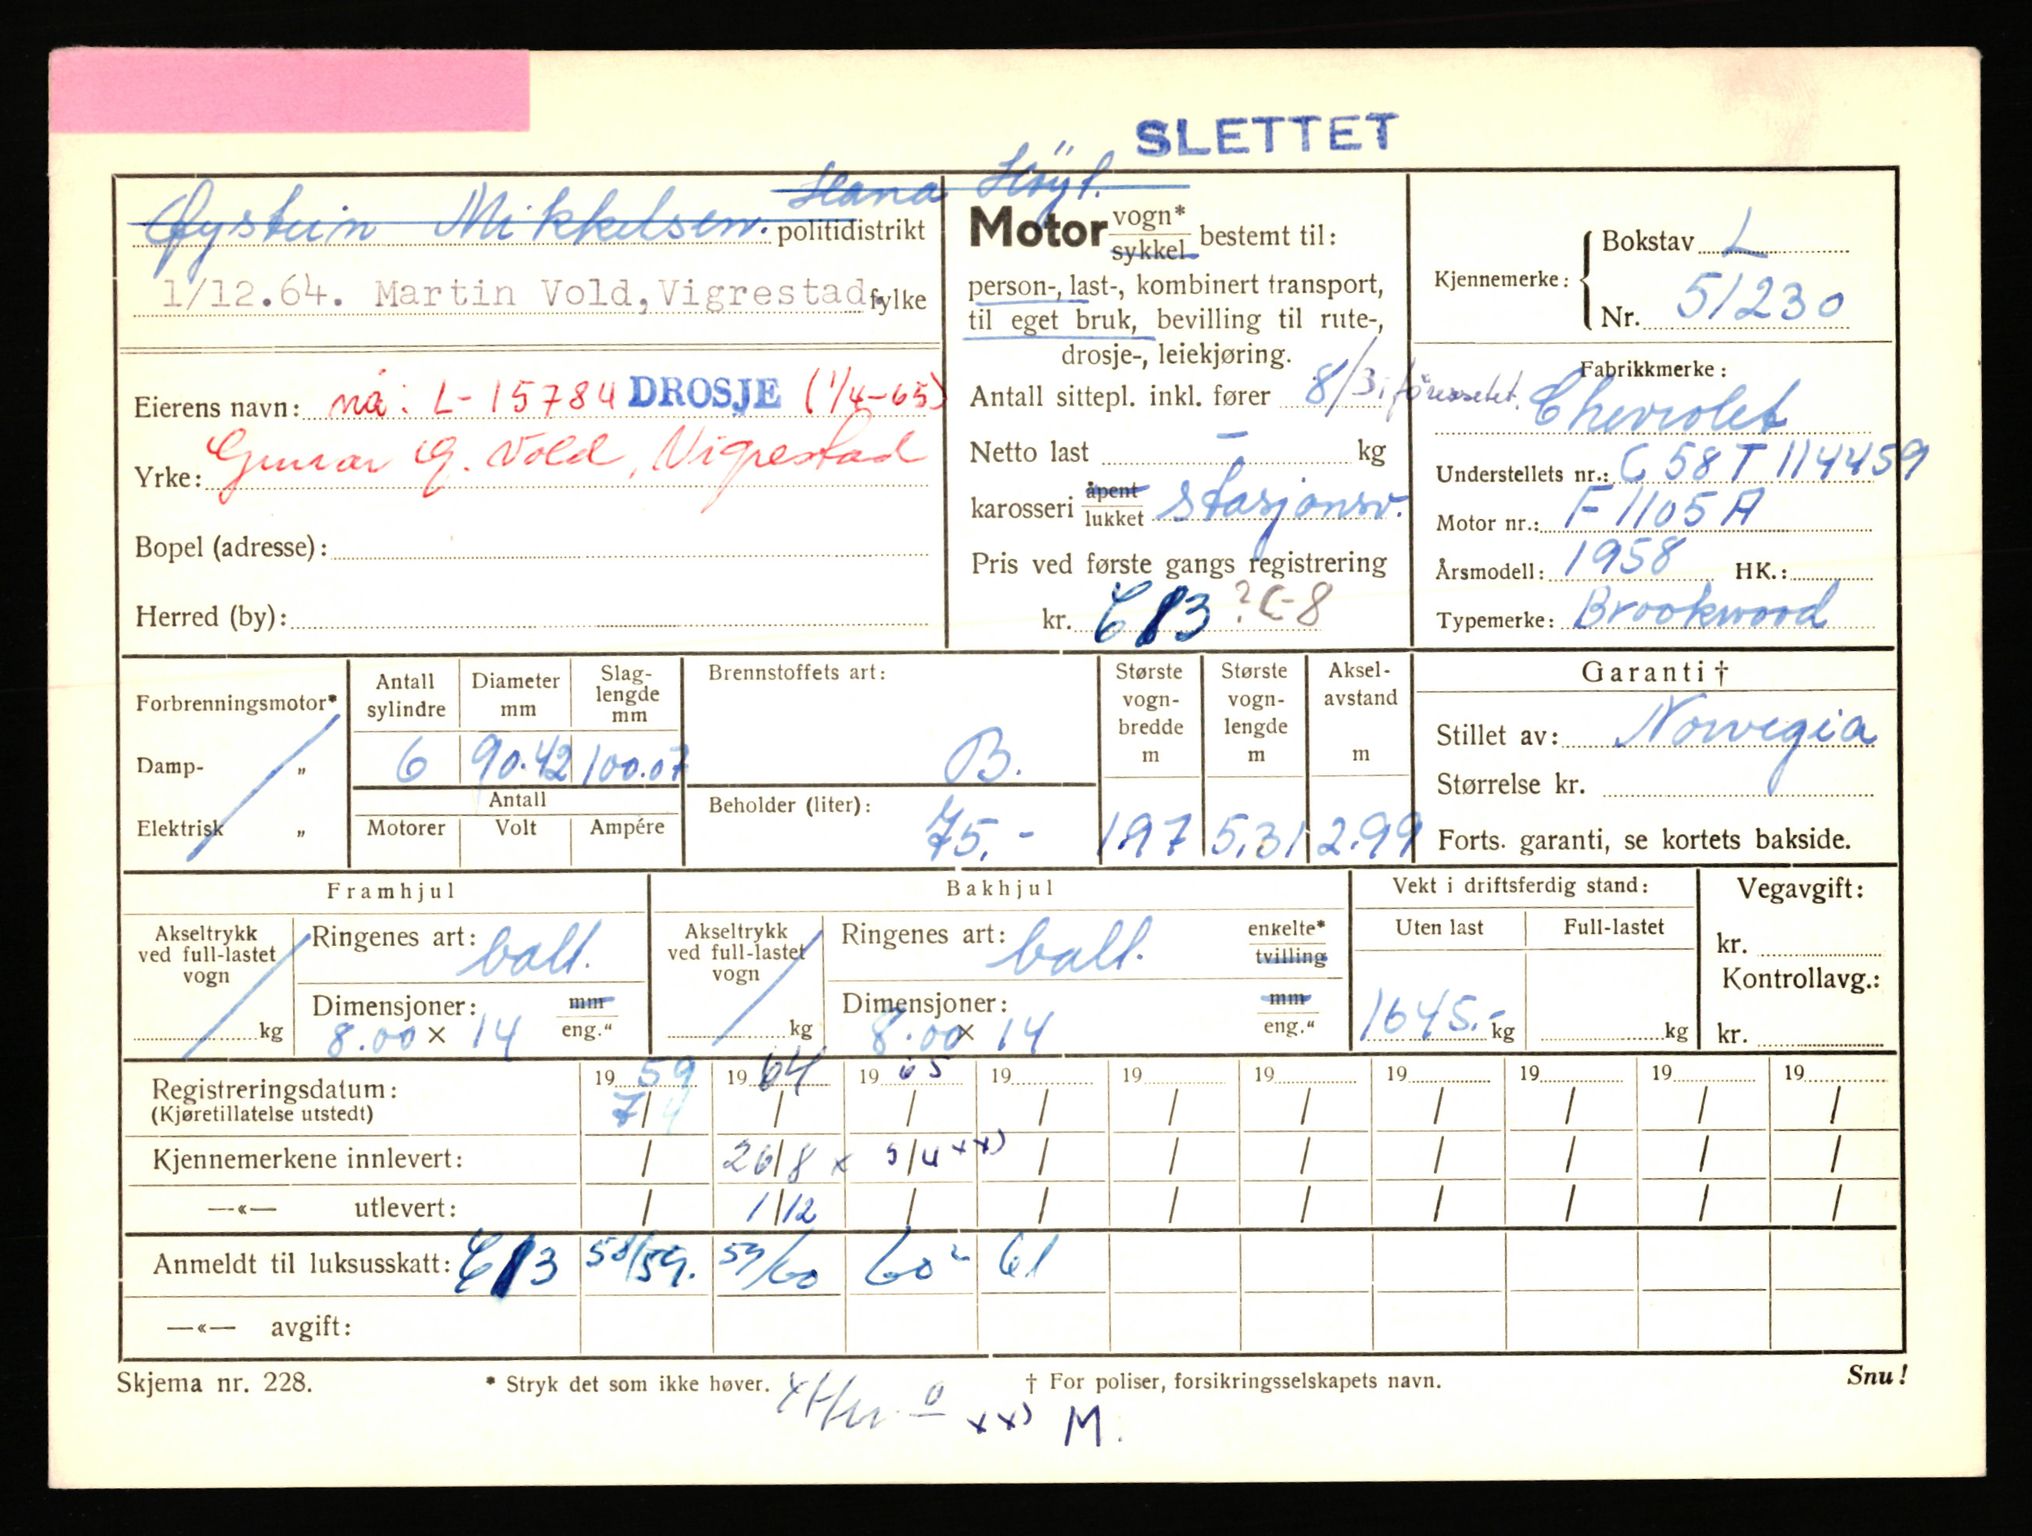 SLETTET
Øystein Mikkelsen. Hana Höyl.
politidistrikt
1/12.64. Martin Vold, Vigrestad. fylke
Eierens navn: nå: L-15784 DROSJE (1/4-65)
Yrke: Gunnar G. Vold, Vigrestad
Bopel (adresse):
Herred (by):
Motor vogn* sykkel bestemt til:
person-, last-, kombinert transport,
til eget bruk, bevilling til rute-,
drosje-, leiekjøring.
Antall sittepl. inkl. fører 8/3 i försetet.
Netto last - kg
karosseri åpent lukket stasjonsv.
Pris ved første gangs registrering
kr. C 13 ? C-8
Kjennemerke: Bokstav L
Nr. 51230
Fabrikkmerke:
Chevrolet
Understellets nr.: C 58 T 114459
Motor nr.: F 1105 A
Årsmodell: 1958 HK.:
Typemerke: Brookwood
Forbrenningsmotor*
Damp- „
Elektrisk „
Antall sylindre Diameter mm Slaglengde mm
6 90.42 100.07
Antall
Motorer Volt Ampére
Brennstoffets art:
B.
Beholder (liter):
75.-
Største vognbredde m Største vognlengde m Akselavstand m
1.97 5.31 2.99
Garanti †
Stillet av: Norvegia
Størrelse kr.
Forts. garanti, se kortets bakside.
Framhjul
Akseltrykk ved full-lastet vogn kg
Ringenes art: ball.
Dimensjoner: mm
8.00 × 14 eng."
Bakhjul
Akseltrykk ved full-lastet vogn kg
Ringenes art: ball. enkelte* tvilling
Dimensjoner: mm
8.00 × 14 eng."
Vekt i driftsferdig stand:
Uten last Full-lastet
1645.- kg kg
Vegavgift:
kr.
Kontrollavg.:
kr.
Registreringsdatum: 19 59 19 64 19 65 19 19 19 19 19 19 19
(Kjøretillatelse utstedt) 7/9 / / / / / / / / /
Kjennemerkene innlevert: / 26/8 x 5/4 xx) / / / / / / /
—«— utlevert: / 1/12 / / / / / / / /
Anmeldt til luksusskatt: C 13 58/59. 59/60 60² 61
—«— avgift:
Skjema nr. 228. * Stryk det som ikke høver. † For poliser, forsikringsselskapets navn. Snu!
xx) M.